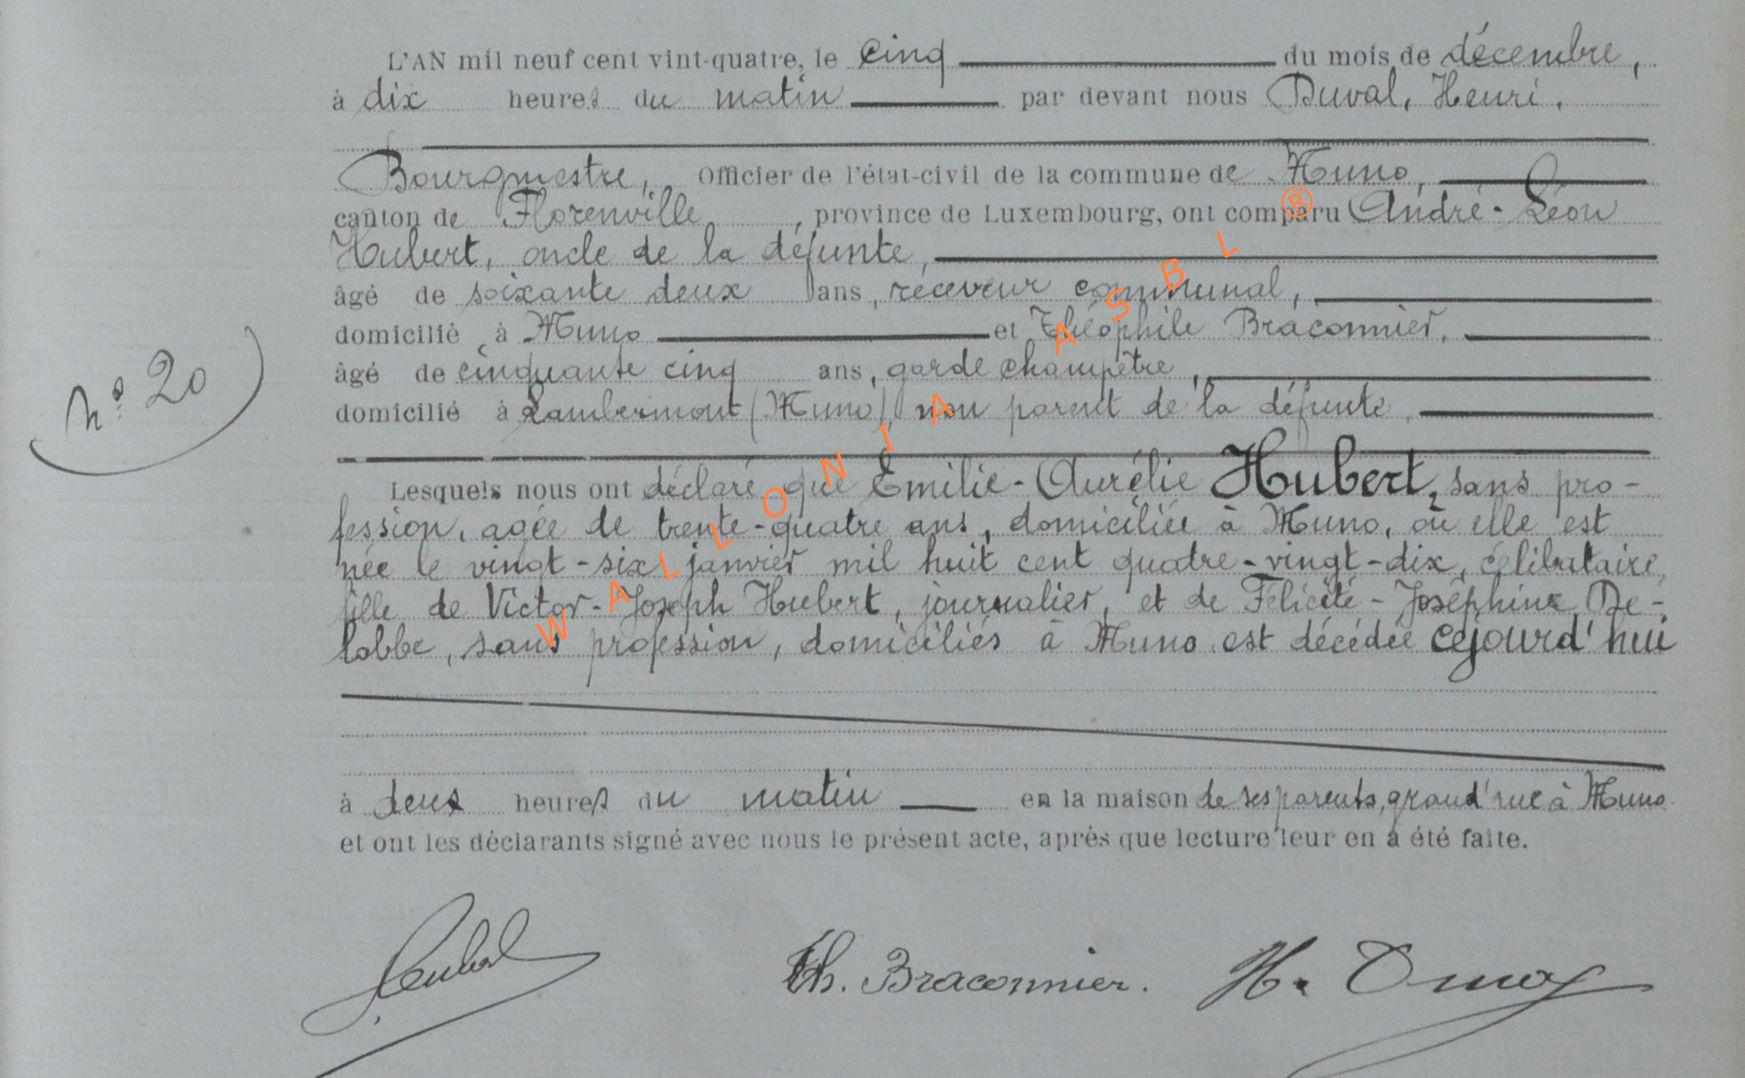 L'AN mil neuf cent vint-quatre, le cinq du mois de décembre,
à dix heures du matin par devant nous Duval, Henri,
Bourgmestre, Officier de l'état-civil de la commune de Muno,
canton de Florenville, province de Luxembourg, ont comparu André-Léon
Hubert, oncle de la défunte,
âgé de soixante deux ans, receveur communal,
domicilié à Muno et Théophile Braconnier,
âgé de cinquante cinq ans, garde champêtre,
domicilié à Lambermont (Muno), non parent de la défunte,
nº 20
Lesquels nous ont déclaré que Emilie-Aurélie Hubert, sans pro-
fession, agée de trente-quatre ans, domiciliée à Muno, où elle est
née le vingt-six janvier mil huit cent quatre-vingt-dix, célibataire,
fille de Victor-Joseph Hubert, journalier, et de Félicité-Joséphine De-
lobbe, sans profession, domiciliés à Muno est décédée cejourd'hui
à deux heures du matin en la maison de ses parents, grand'rue à Muno
et ont les déclarants signé avec nous le présent acte, après que lecture leur en a été faite.
Th. Braconnier. H. Duval
WALLONIA ASBL ®